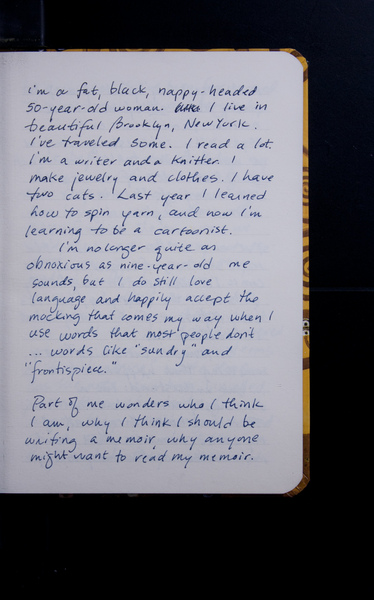 i'm a fat, black, nappy-headed
50-year-old woman. I live in
beautiful Brooklyn, New York.
I've traveled some. I read a lot.
I'm a writer and a knitter. I
make jewelry and clothes. I have
two cats. Last year I learned
how to spin yarn, and now I'm
learning to be a cartoonist.
I'm no longer quite as
obnoxious as nine-year-old me
sounds, but I do still love
language and happily accept the
mocking that comes my way when I
use words that most people don't
... words like "sundry" and
"frontispiece."
Part of me wonders who I think
I am, why I think I should be
writing a memoir, why anyone
might want to read my memoir.